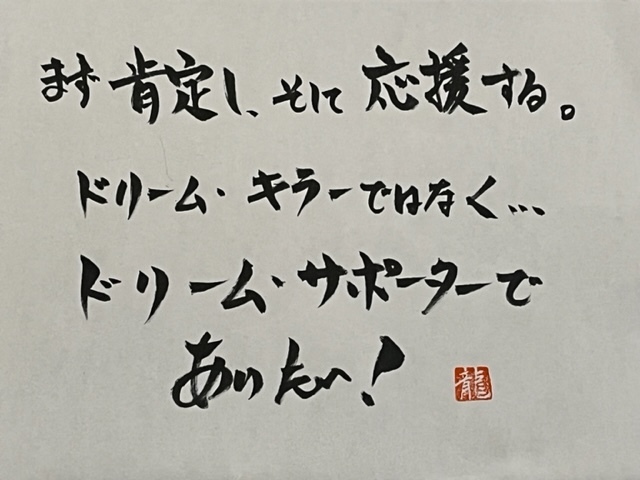 まず肯定し、そして応援する。
ドリーム・キラーではなく…
ドリーム・サポーターで
ありたい!
龍